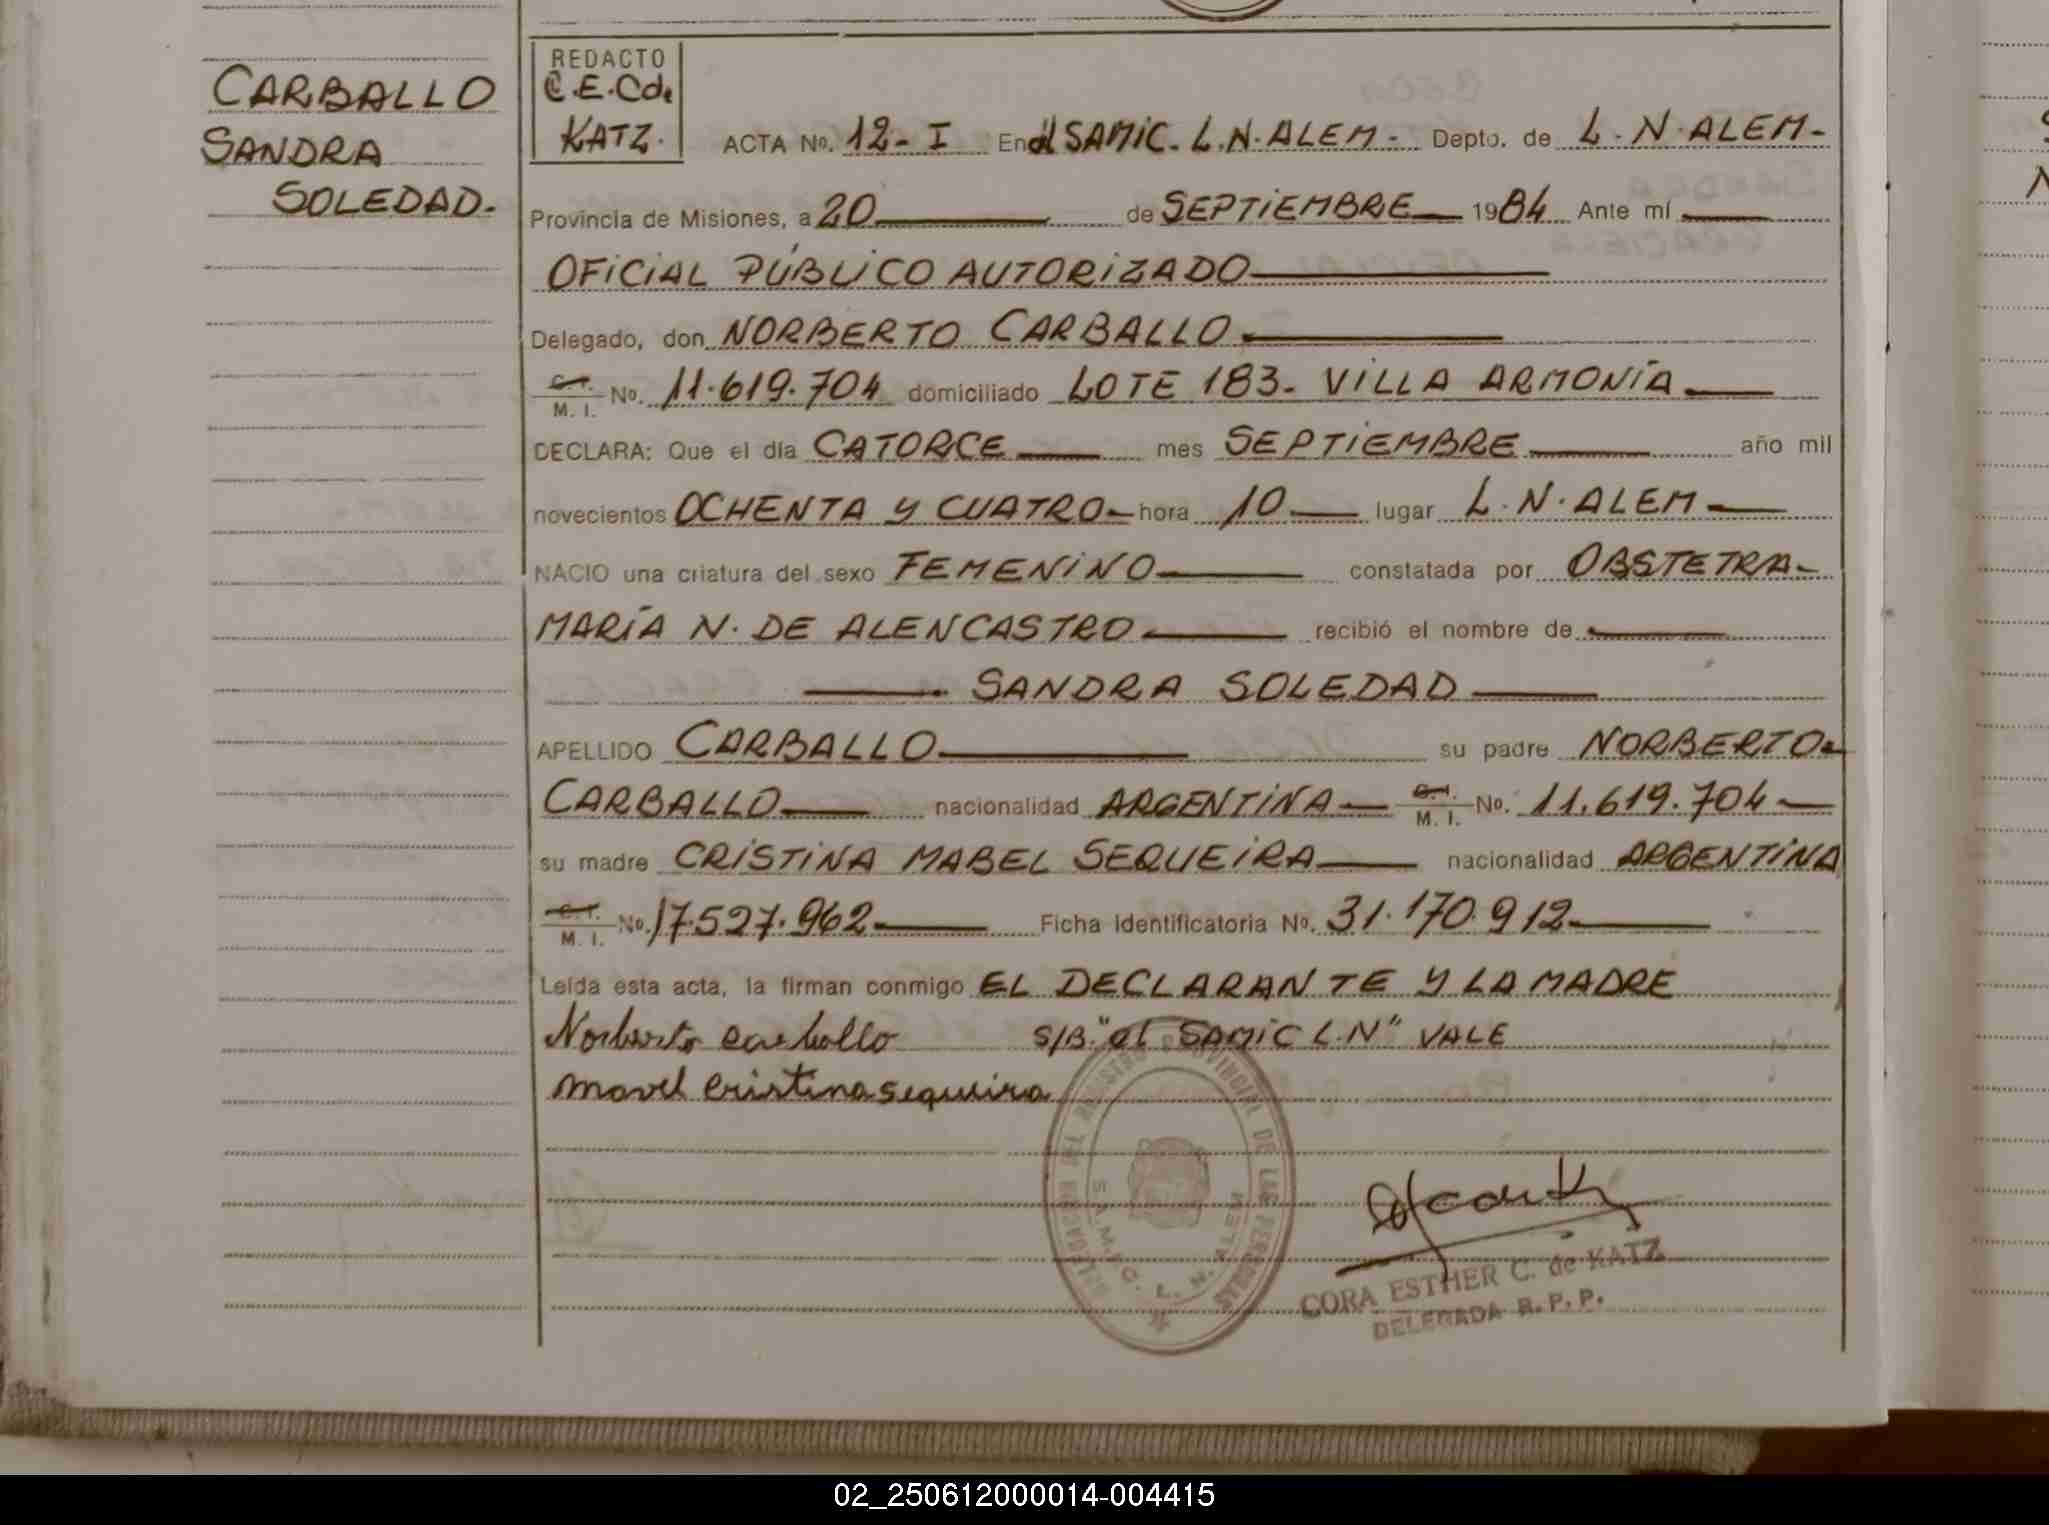 CARBALLO
SANDRA
SOLEDAD.
REDACTO
C.E.Cde
KATZ.
ACTA No. 12-I En el SAMIC. L.N.ALEM- Depto. de L.N.ALEM-
Provincia de Misiones, a 20 de SEPTIEMBRE 1984 Ante mí
OFICIAL PÚBLICO AUTORIZADO
Delegado, don NORBERTO CARBALLO
C.I. M.I. No. 11.619.704 domiciliado LOTE 183- VILLA ARMONÍA
DECLARA: Que el día CATORCE mes SEPTIEMBRE año mil
novecientos OCHENTA Y CUATRO hora 10 lugar L.N.ALEM
NACIO una criatura del sexo FEMENINO constatada por OBSTETRA-
MARÍA N. DE ALENCASTRO recibió el nombre de
SANDRA SOLEDAD
APELLIDO CARBALLO su padre NORBERTO-
CARBALLO nacionalidad ARGENTINA C.I. M.I. No. 11.619.704
su madre CRISTINA MABEL SEQUEIRA nacionalidad ARGENTINA
C.I. M.I. No. 17.527.962 Ficha Identificatoria No. 31.170.912
Leída esta acta, la firman conmigo EL DECLARANTE Y LA MADRE
Norberto Carballo S/B "el SAMIC L.N" VALE
Mavel Cristina sequeira
DELEGACION DEL REGISTRO PROVINCIAL DE LAS PERSONAS
S.A.M.I.C. L. N. ALEM
CORA ESTHER C. de KATZ
DELEGADA R.P.P.
02_250612000014-004415